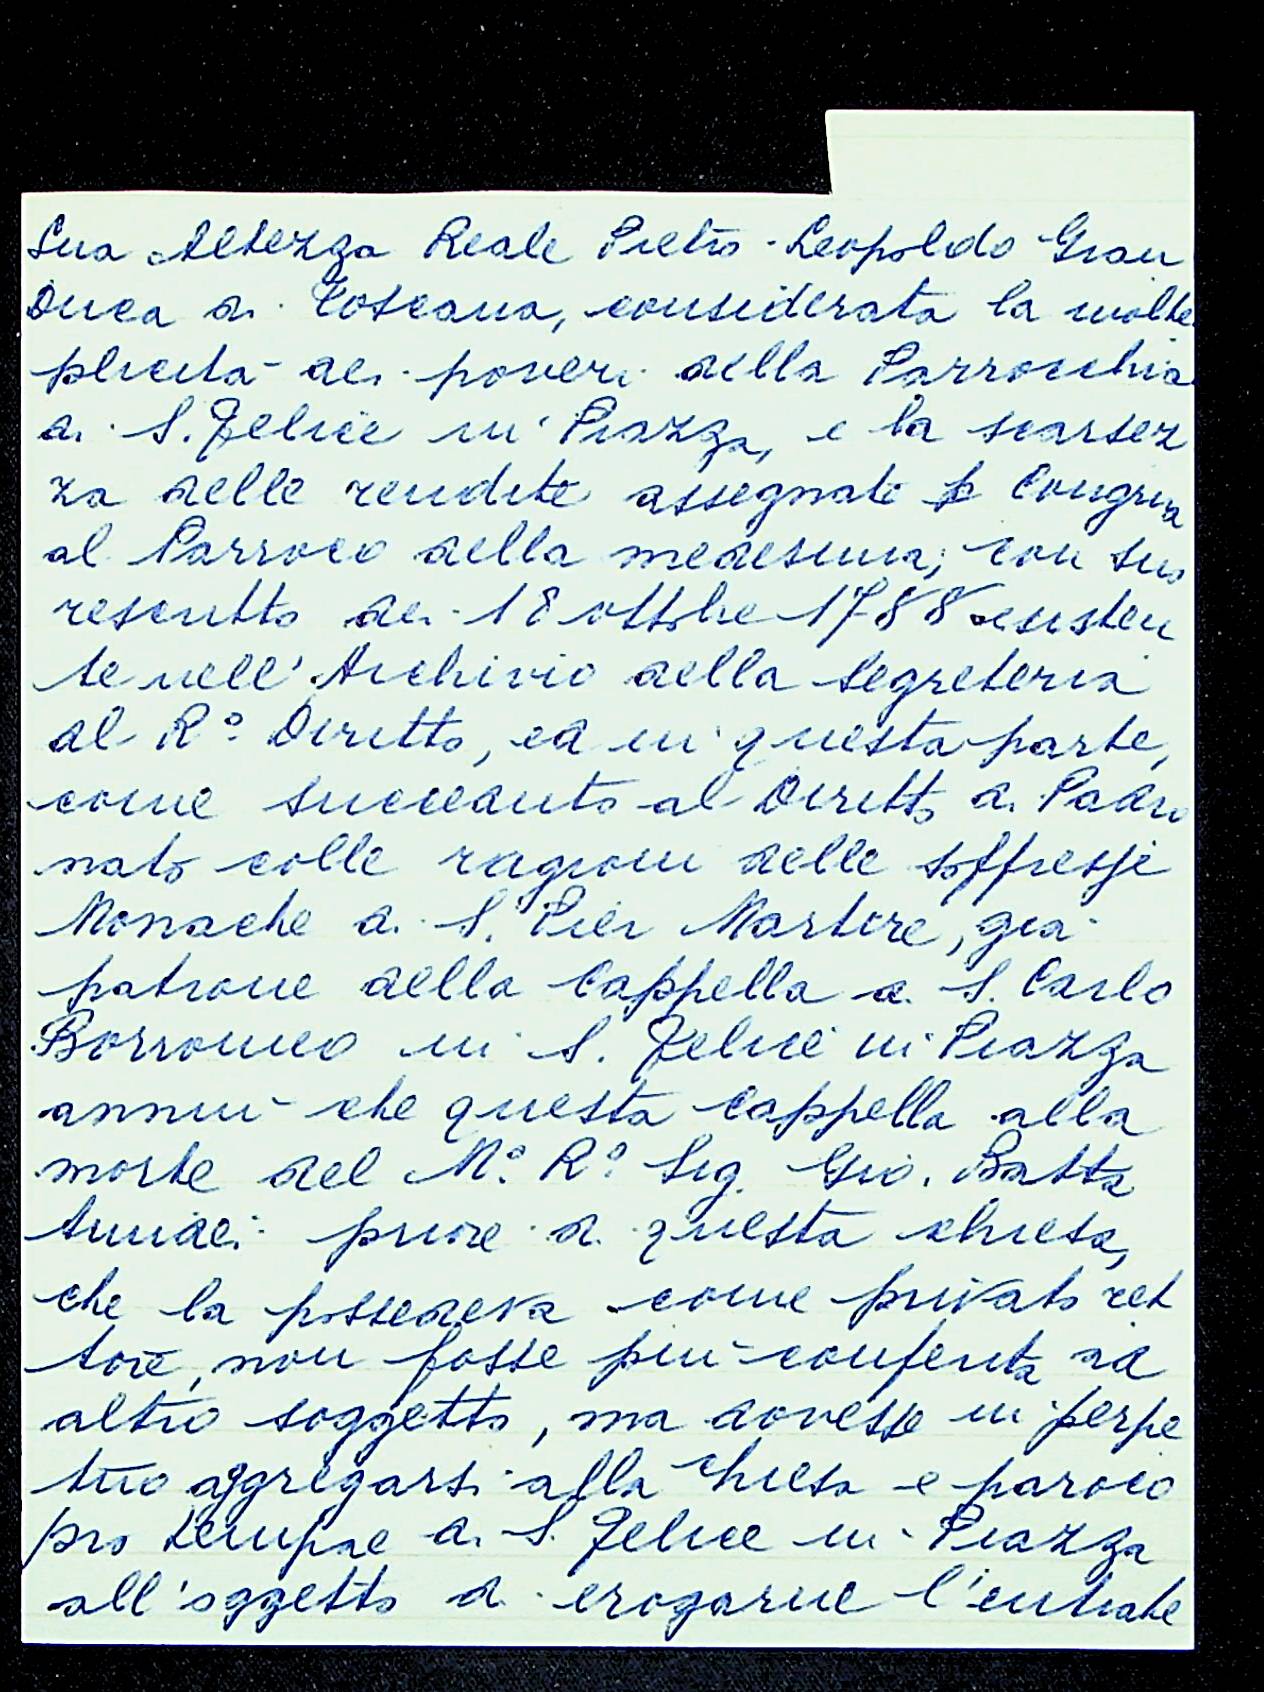 Sua Altezza Reale Pietro Leopoldo Gran
Duca di Toscana, considerata la molte
plicità dei poveri della Parrocchia
di S. Felice in Piazza, e la scarsez
za delle rendite assegnate p Congrua
al Parroco della medesima; con suo
rescritto dei 18 ottbre 1788 esisten
te nell'Archivio della Segreteria
al R.º Diritto, ed in questa parte,
come succeduto al Diritto di Padro
nato colle ragioni delle soppresse
Monache di S. Pier Martire, già
patrone della Cappella di S. Carlo
Borromeo in S. Felice in Piazza
annuì che questa Cappella alla
morte del M.º R.º Sig. Gio. Batta
priore di questa chiesa,
che la possedeva come privato ret
tore, non fosse più conferita ad
altro soggetto, ma dovesse in perpe
tuo aggregarsi alla chiesa e paroco
pro tempore di S. Felice in Piazza
all'oggetto di erogarne l'entrate